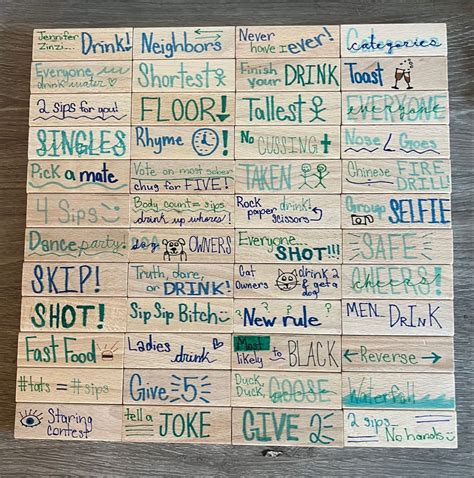 Jennifer
Zinzi... Drink!
Neighbors
Never
have I ever!
Categories
Everyone
drink water
Shortest
Finish
your DRINK
Toast
2 sips for you!
FLOOR!
Tallest
EVERYONE
SINGLES
Rhyme !
No
CUSSING
Nose Goes
Pick a mate
Vote on most sober
chug for FIVE!
TAKEN
Chinese FIRE
DRILL!
4 Sips
Body count = sips
drink up whores!
Rock
paper drink!
scissors
Group
SELFIE
Dance party!
Dog OWNERS
Everyone...
SHOT!!!
SAFE
SKIP!
Truth, dare,
or DRINK!
Cat
Owners drink 2
& get a
dog
CHEERS!
SHOT!
Sip Sip Bitch
? ? ?
New rule
MEN DRINK
Fast Food
Ladies
drink
Most
likely to BLACK
Reverse
#tats = #sips
Give 5
Duck
Duck GOOSE
Waterfall
Staring
contest
tell a
JOKE
GIVE 2
2 sips
No hands